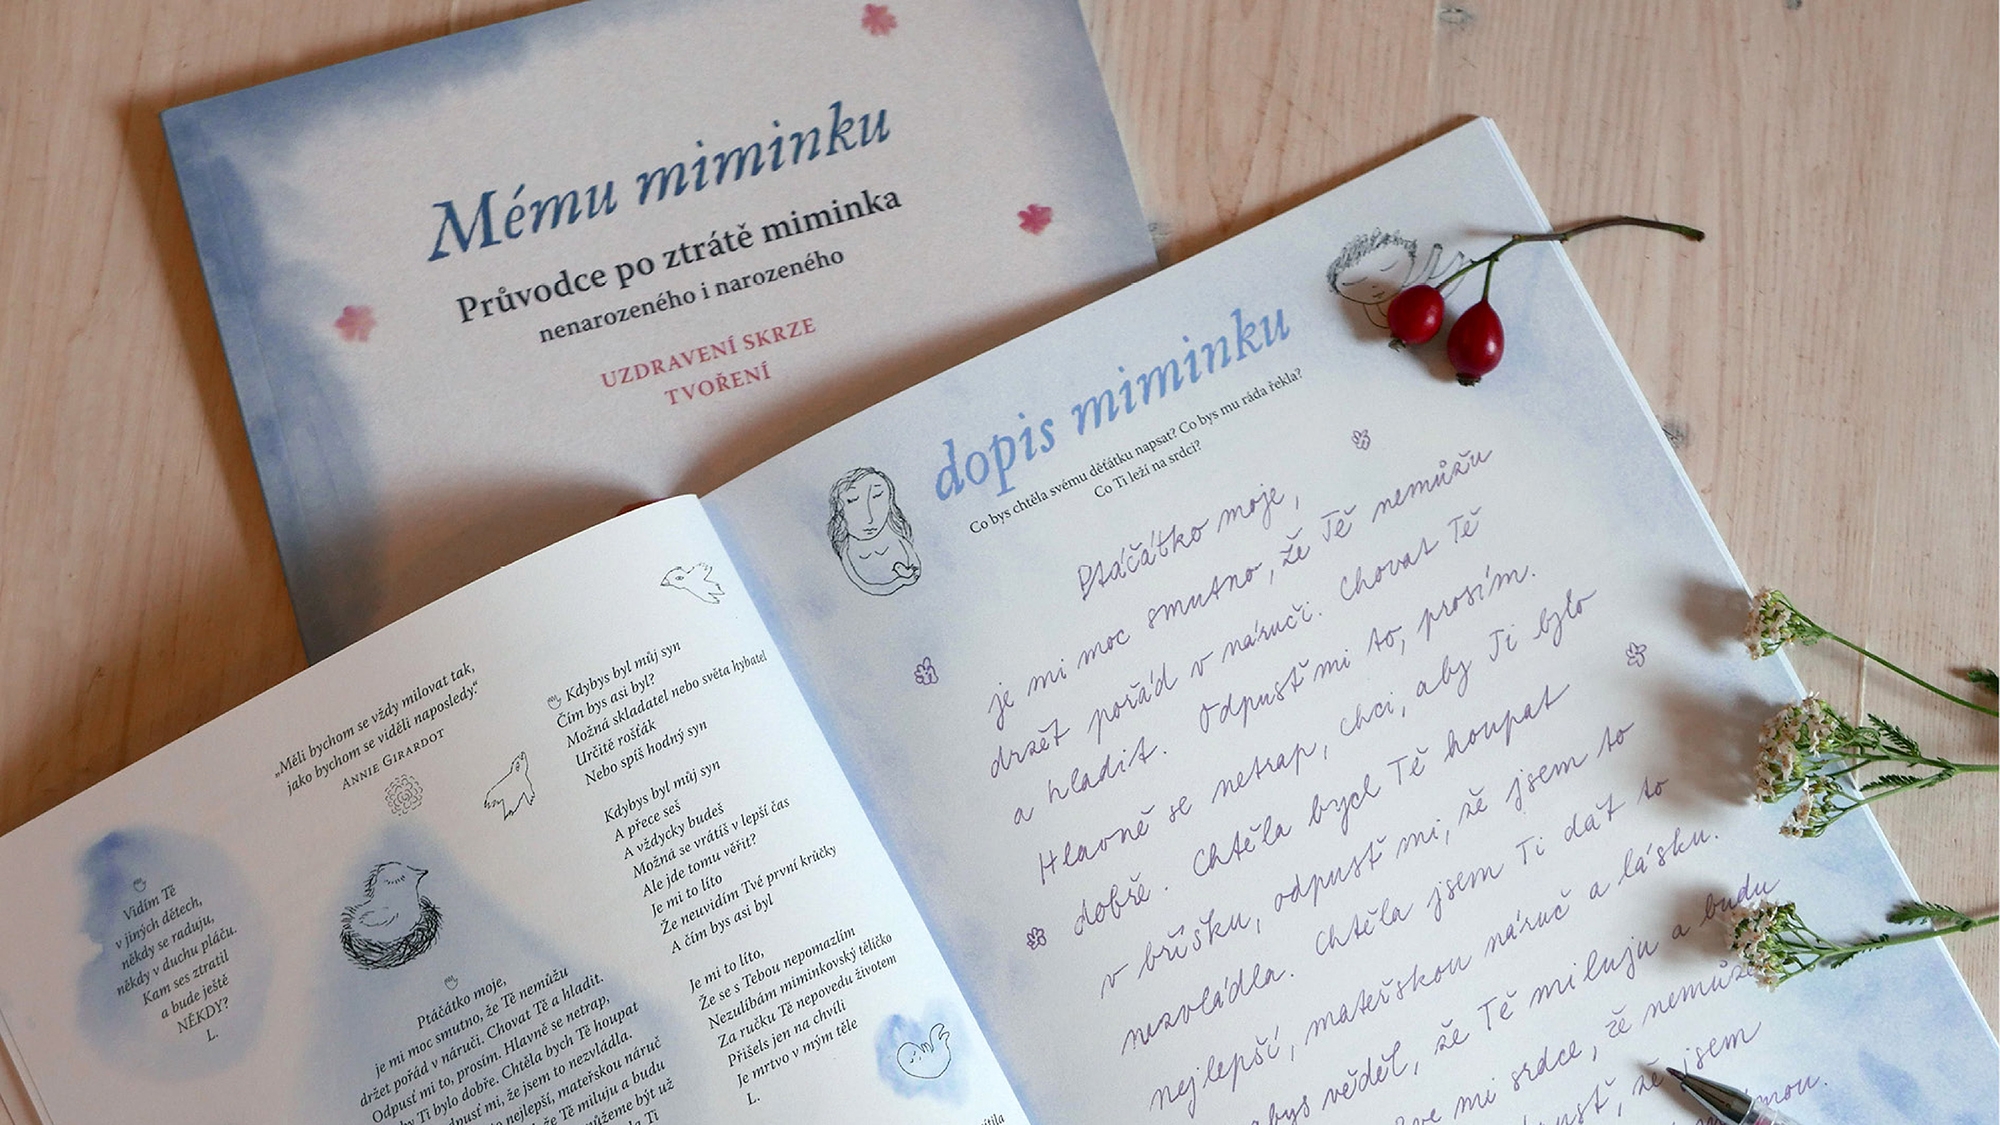 Mému miminku
Průvodce po ztrátě miminka
nenarozeného i narozeného
UZDRAVENÍ SKRZE
TVOŘENÍ
„Měli bychom se vždy milovat tak,
jako bychom se viděli naposledy.“
ANNIE GIRARDOT
Vidím Tě
v jiných dětech,
někdy se raduju,
někdy v duchu pláču.
Kam ses ztratil
a bude ještě
NĚKDY?
L.
Ptáčátko moje,
je mi moc smutno, že Tě nemůžu
držet pořád v náruči. Chovat Tě a hladit.
Odpusť mi to, prosím. Hlavně se netrap,
by Ti bylo dobře. Chtěla bych Tě houpat
dpusť mi, že jsem to nezvládla.
to nejlepší, mateřskou náruč
že Tě miluju a budu
můžeme být už
Ti
Kdybys byl můj syn
Čím bys asi byl?
Možná skladatel nebo světa hybatel
Určitě rošťák
Nebo spíš hodný syn
Kdybys byl můj syn
A přece seš
A vždycky budeš
Možná se vrátíš v lepší čas
Ale jde tomu věřit?
Je mi to líto
Že neuvidím Tvé první krůčky
A čím bys asi byl
Je mi to líto,
Že se s Tebou nepomazlím
Nezulíbám miminkovský tělíčko
Za ručku Tě nepovedu životem
Přišels jen na chvíli
Je mrtvo v mým těle
L.
dopis miminku
Co bys chtěla svému děťátku napsat? Co bys mu ráda řekla?
Co Ti leží na srdci?
Ptáčátko moje,
je mi moc smutno, že Tě nemůžu
držet pořád v náruči. Chovat Tě
a hladit. Odpusť mi to, prosím.
Hlavně se netrap, chci, aby Ti bylo
dobře. Chtěla bych Tě houpat
v bříšku, odpusť mi, že jsem to
nezvládla. Chtěla jsem Ti dát to
nejlepší, mateřskou náruč a lásku.
abys věděl, že Tě miluju a budu
mi srdce, že nemůže
že jsem